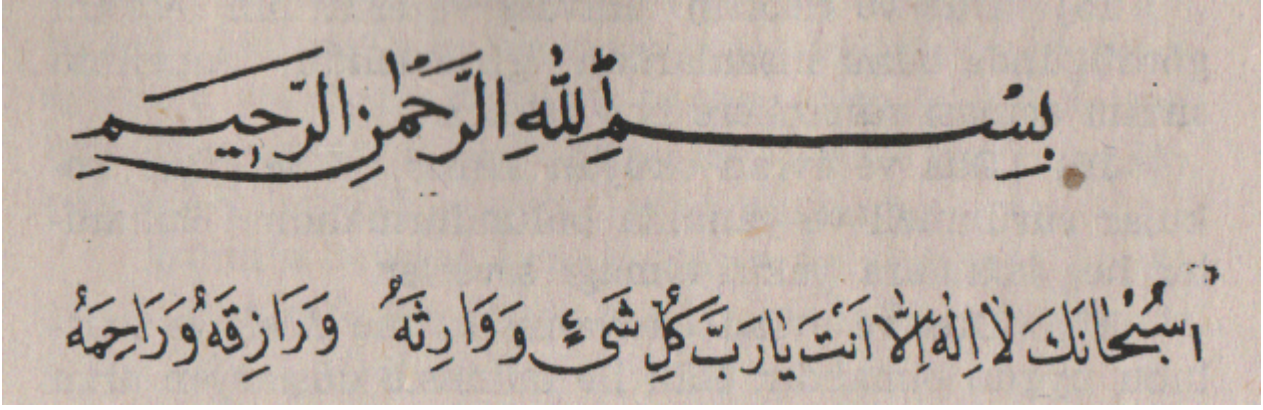 بِسْمِ اللّٰهِ الرَّحْمٰنِ الرَّحِيمِ
١ سُبْحَانَكَ لَا اِلٰهَ اِلَّا اَنْتَ يَارَبَّ كُلِّ شَىْءٍ وَوَارِثَهُ وَرَازِقَهُ وَرَاحِمَهُ